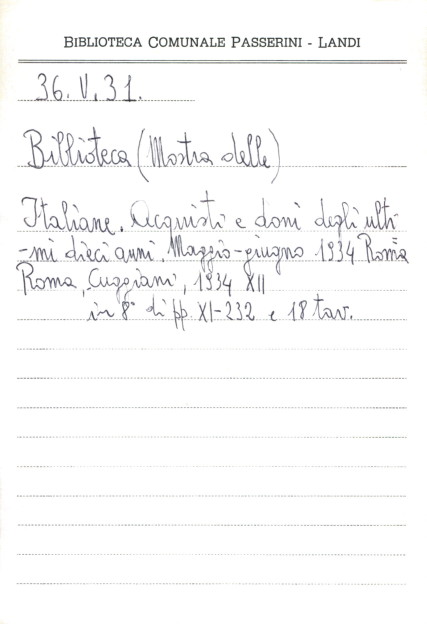 BIBLIOTECA COMUNALE PASSERINI - LANDI
36. V. 31.
Biblioteca (Mostra delle)
Italiane. Acquisti e doni degli ulti-
-mi dieci anni. Maggio-giugno 1934 Roma
Roma, Cuggiani, 1934 XII
in 8° di pp. XI-232 e 18 tav.